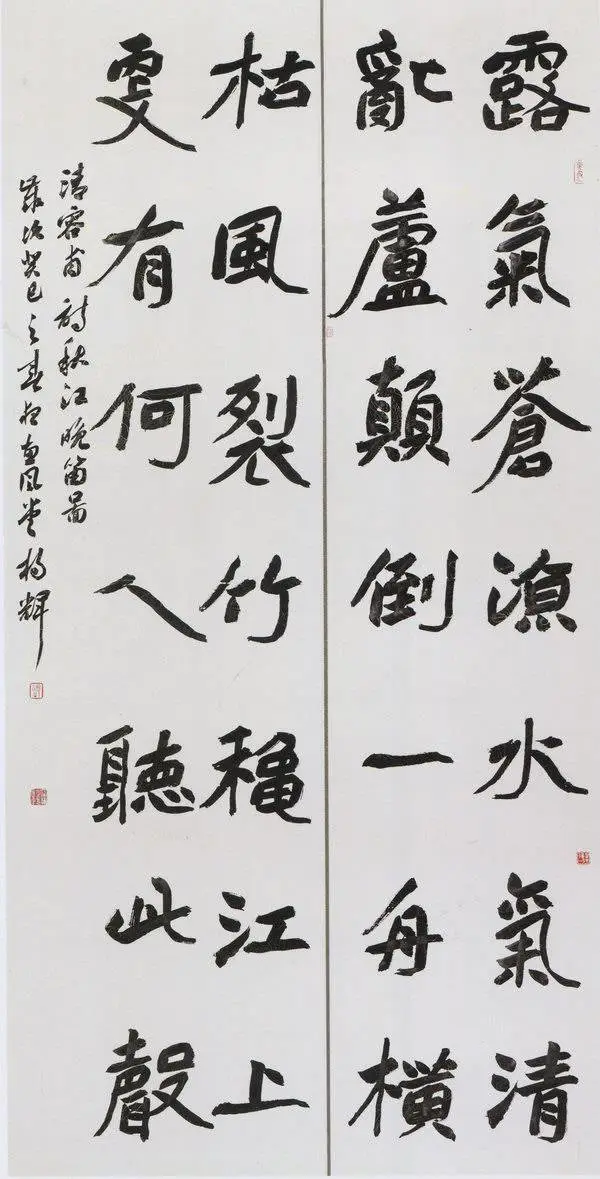 露氣蒼涼水氣清
亂蘆顛倒一舟橫
枯風裂竹穐江上
更有何人聽此聲
清容甫詩秋江晚笛圖
歲次癸巳之春於風堂楊輝